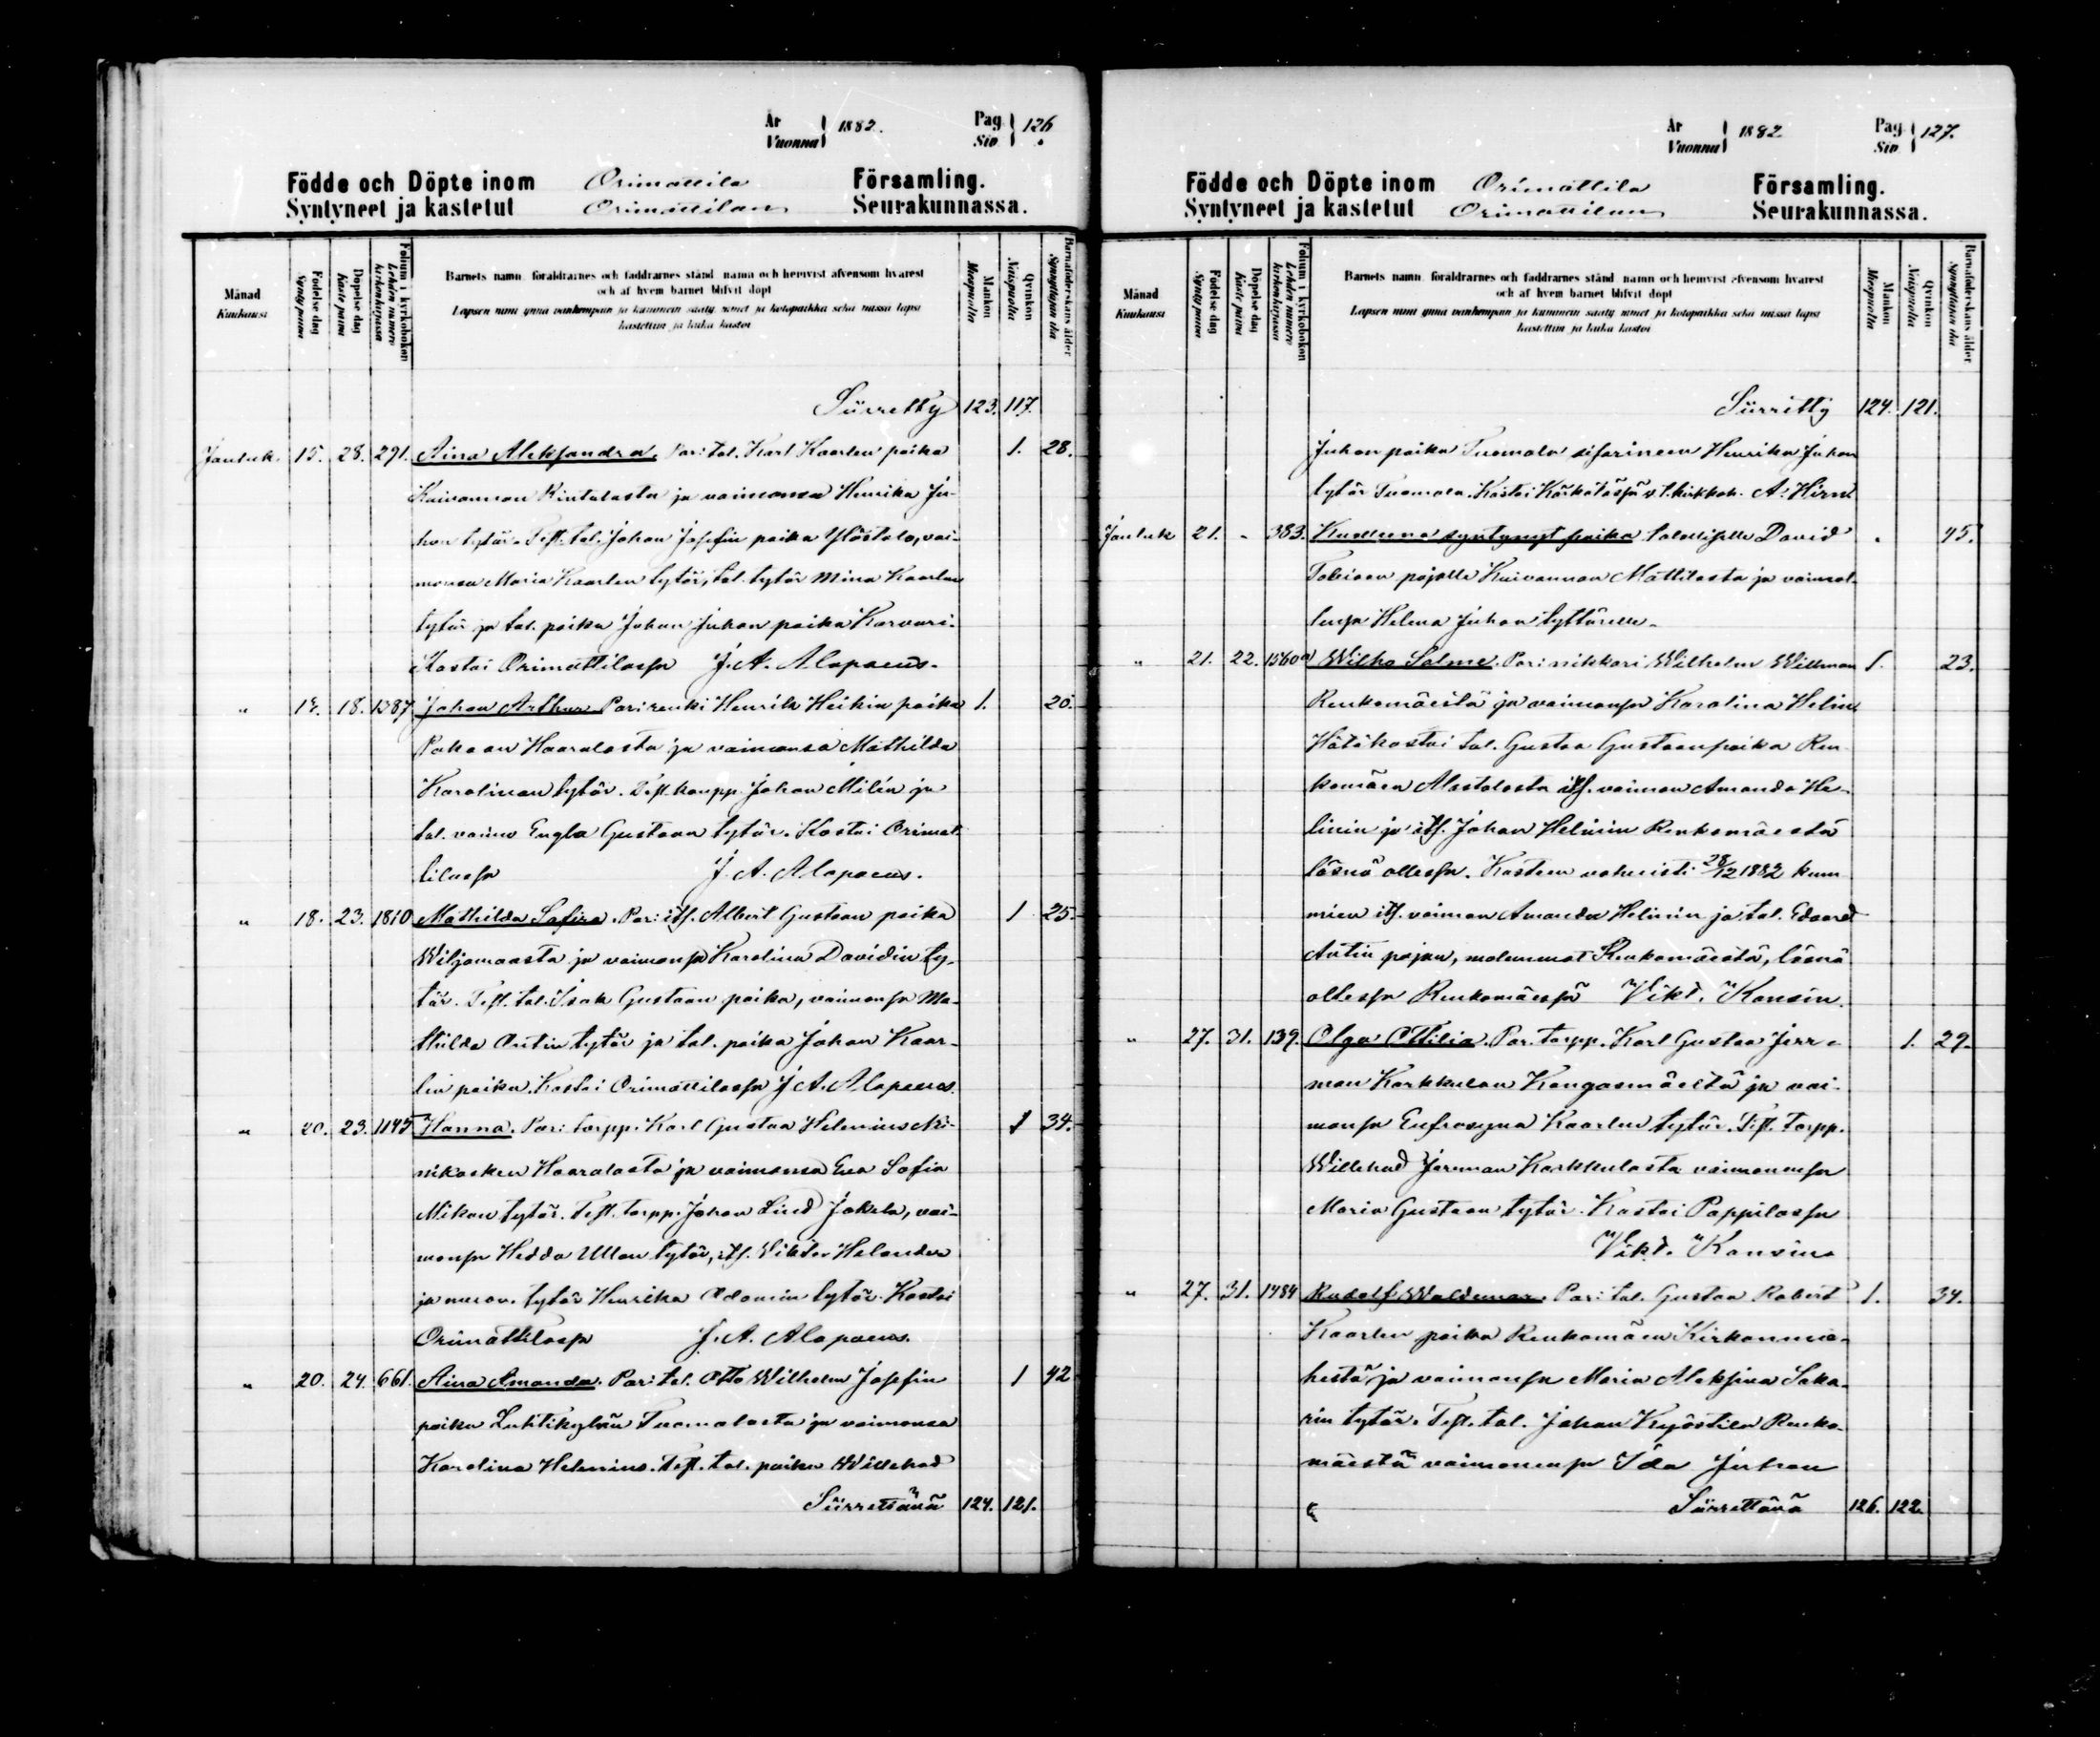 År
Vuonna 1882.
Pag.
Siv. 126
Födde och Döpte inom Orimattila Församling.
Syntyneet ja kastetut Orimattilan Seurakunnassa.
Månad
Kuukausi
Födelse dag
Synty päivä
Döpelse dag
Kaste päivä
Folium i kyrkobokon
Lehden numero kirkonkirjassa
Barnets namn, föräldrarnes och faddrarnes stånd, namn och hemvist äfvensom hvarest
och af hvem barnet blifvit döpt
Lapsen nimi ynnä vanhempain ja kummein sääty, nimet ja kotopaikka sekä missä lapsi
kastettiin ja kuka kastoi
Mankön
Miespuolta
Qvinkön
Naispuolta
Barnaföderskans ålder
Synnyttäjän ikä
Siirretty 123. 117.
Jouluk. 15. 28. 291. Aina Aleksandra. Par: tal. Karl Kaarlen poika 1. 28.
Kuivannon Rintalasta ja vaimonsa Henrika Ju-
hon tytär. Test. tal. Johan Josefin poika Ylöstalo, vai-
monsa Maria Kaarlen tytär, tal. tytär Mina Kaarlen
tytär ja tal. poika Johan Juhan poika Korvari.
Kastoi Orimattilassa J. A. Alopaeus.
" 18. 1387 Johan Arthur Par: renki Henrik Heikin poika 1. 20.
Pakaan Haaralasta ja vaimonsa Mathilda
Karolinan tytär. Test. kaupp. Johan Milin ja
tal. vaimo Engla Gustaan tytär. Kastoi Orimat-
tilassa J. A. Alopaeus.
" 18. 23. 1810 Mathilda Safira. Par: its. Albert Gustaan poika 1 25.
Wiljamaasta ja vaimonsa Karolina Davidin ty-
tär. Test. tal. Isak Gustaan poika, vaimonsa Ma-
thilda Antin tytär ja tal. poika Johan Kaar-
lin poika. Kastoi Orimattilassa J. A. Alopaeus.
" 20. 23. 1145 Hanna. Par: torpp. Karl Gustaa Helenius Ni- 1 34.
nikosken Haaralasta ja vaimonsa Eva Sofia
Mikon tytär. Test. torpp. Johan Lind Jokela, vai-
monsa Hedda Ullan tytär, its. Viktor Helander
ja muron. tytär Henrika Adamin tytär. Kastoi
Orimattilassa J. A. Alopaeus.
" 20. 24. 661. Aina Amanda. Par: tal. Otto Wilhelm Josefin 1 42
poika Luhtikylän Tuomalasta ja vaimonsa
Karolina Helenius. Test. tal. poika Willehad
Siirrettävä 124. 121.
År
Vuonna 1882
Pag.
Siv. 127.
Födde och Döpte inom Orimattila Församling.
Syntyneet ja kastetut Orimattilan Seurakunnassa.
Månad
Kuukausi
Födelse dag
Synty päivä
Döpelse dag
Kaste päivä
Folium i kyrkobokon
Lehden numero kirkonkirjassa
Barnets namn, föräldrarnes och faddrarnes stånd, namn och hemvist äfvensom hvarest
och af hvem barnet blifvit döpt
Lapsen nimi ynnä vanhempain ja kummein sääty, nimet ja kotopaikka sekä missä lapsi
kastettiin ja kuka kastoi
Mankön
Miespuolta
Qvinkön
Naispuolta
Barnaföderskans ålder
Synnyttäjän ikä
Siirretty 124. 121.
Juhan poika Tuomala sisarineen Henrika Juhan
tytär Tuomala. Kastoi Kärkölässä v.t. kirkkoh. A. Hirn
Jouluk 21. - 383. Kuolleena syntynyt poika talollisselle David . 45.
Tobiaan pojalle Kuivannon Mattilasta ja vaimol-
lensa Helena Juhan tyttärelle.
" 21. 22. 1560 Wilho Salmo. Par: nikkari Wilhelm Willman 1. 23.
Renkomäeltä ja vaimonsa Karolina Helin.
Hätäkastoi tal. Gustaa Gustaanpoika Ren-
komäen Alastalosta its. vaimon Amanda He-
linin ja its. Johan Helinin Renkomäestä
läsnä ollessa. Kasteen vahvisti 28/12 1882 kum-
mien its. vaimon Amanda Helinin ja tal. Edvard
Antin pojan, molemmat Renkomäestä, läsnä
ollessa Renkomäessä Vikt. Konsin.
" 27. 31. 139. Olga Ottilia. Par. torpp. Karl Gustaa Jerr- 1. 29.
man Karkkulan Kangasmäeltä ja vai-
monsa Eufrosyna Kaarlen tytär. Test. torpp.
Willehad Jerrman Karkkulasta vaimonensa
Maria Gustaan tytär. Kastoi Pappilassa
Vikt. Konsin
" 27. 31. 1484 Rudolf Waldemar. Par: tal. Gustaa Robert 1. 34.
Kaarlen poika Renkomäen Kirkonmie-
hestä ja vaimonsa Maria Aleksina Saka-
rin tytär. Test. tal. Johan Kyöstilä Renko-
mäestä vaimonensa Ida Juhan
Siirrettävä 126. 122.